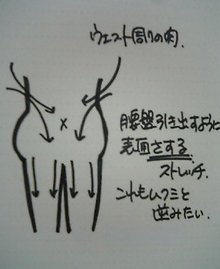 ウェスト周りの肉.
腰盤引き出すようと
表面さする
ストレッチ.
これもムクミと
並みたい.